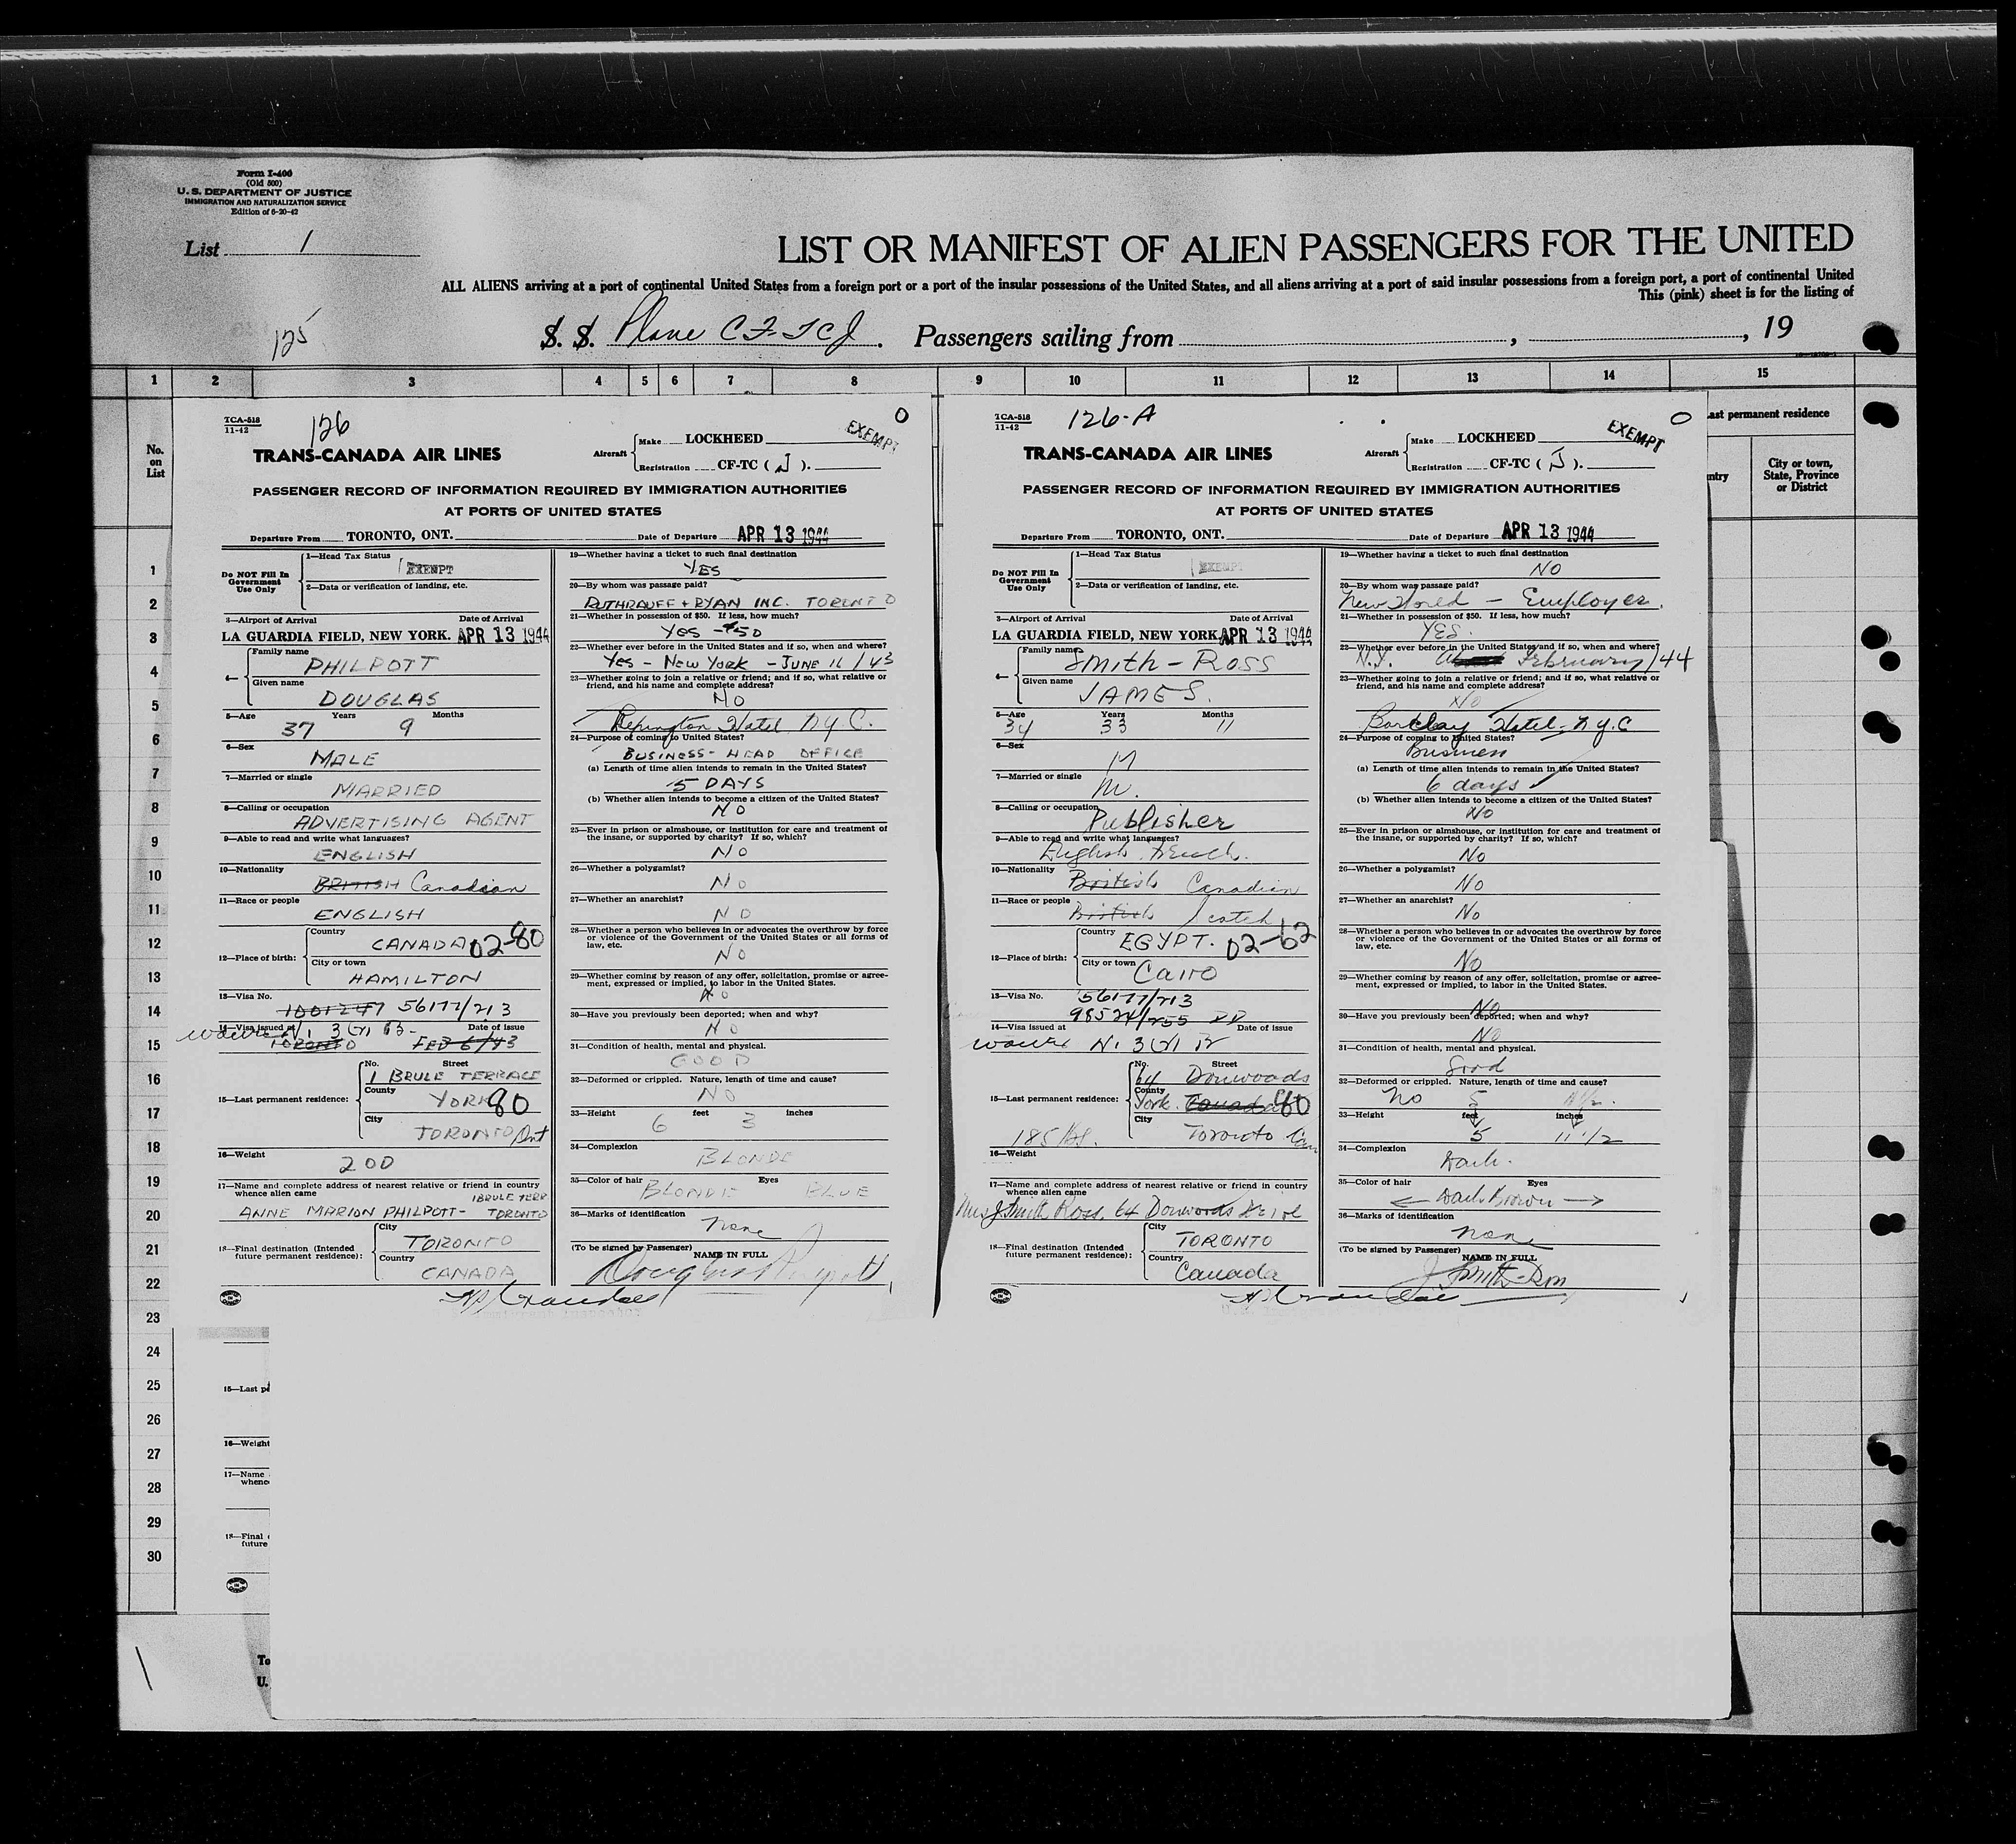 Form I-400
(Old 500)
U. S. DEPARTMENT OF JUSTICE
IMMIGRATION AND NATURALIZATION SERVICE
Edition of 6-20-42
List 1
LIST OR MANIFEST OF ALIEN PASSENGERS FOR THE UNITED
ALL ALIENS arriving at a port of continental United States from a foreign port or a port of the insular possessions of the United States, and all aliens arriving at a port of said insular possessions from a foreign port, a port of continental United
This (pink) sheet is for the listing of
125
S. S. Plane CF-TCJ. Passengers sailing from , , 19
1 2 3 4 5 6 7 8 9 10 11 12 13 14 15
No.
on
List
Last permanent residence
ntry
City or town,
State, Province
or District
TCA-518
11-42
126
O
EXEMPT
TRANS-CANADA AIR LINES
Aircraft
Make LOCKHEED
Registration CF-TC ( J ).
PASSENGER RECORD OF INFORMATION REQUIRED BY IMMIGRATION AUTHORITIES
AT PORTS OF UNITED STATES
Departure From TORONTO, ONT. Date of Departure APR 13 1944
Do NOT Fill In
Government
Use Only
1—Head Tax Status
EXEMPT
2—Data or verification of landing, etc.
3—Airport of Arrival Date of Arrival
LA GUARDIA FIELD, NEW YORK. APR 13 1944
4—
Family name
PHILPOTT
Given name
DOUGLAS
5—Age Years Months
37 9
6—Sex
MALE
7—Married or single
MARRIED
8—Calling or occupation
ADVERTISING AGENT
9—Able to read and write what languages?
ENGLISH
10—Nationality
BRITISH Canadian
11—Race or people
ENGLISH
12—Place of birth:
Country
CANADA 02-80
City or town
HAMILTON
13—Visa No.
1001247 56177/213
14—Visa issued at Date of issue
TORONTO FEB 6/43
15—Last permanent residence:
No. Street
1 BRULE TERRACE
County
YORK 80
City
TORONTO Ont
16—Weight
200
17—Name and complete address of nearest relative or friend in country
whence alien came
1 BRULE TERR
ANNE MARION PHILPOTT- TORONTO
18—Final destination (Intended
future permanent residence):
City
TORONTO
Country
CANADA
19—Whether having a ticket to such final destination
YES
20—By whom was passage paid?
RUTHRAUFF + RYAN INC. TORONTO
21—Whether in possession of $50. If less, how much?
YES - $50
22—Whether ever before in the United States and if so, when and where?
YES - NEW YORK - JUNE 16/43
23—Whether going to join a relative or friend; and if so, what relative or
friend, and his name and complete address?
NO
Hotel N.Y.C.
24—Purpose of coming to United States?
BUSINESS - HEAD OFFICE
(a) Length of time alien intends to remain in the United States?
5 DAYS
(b) Whether alien intends to become a citizen of the United States?
NO
25—Ever in prison or almshouse, or institution for care and treatment of
the insane, or supported by charity? If so, which?
NO
26—Whether a polygamist?
NO
27—Whether an anarchist?
NO
28—Whether a person who believes in or advocates the overthrow by force
or violence of the Government of the United States or all forms of
law, etc.
NO
29—Whether coming by reason of any offer, solicitation, promise or agree-
ment, expressed or implied, to labor in the United States.
NO
30—Have you previously been deported; when and why?
NO
31—Condition of health, mental and physical.
GOOD
32—Deformed or crippled. Nature, length of time and cause?
NO
33—Height feet inches
6 3
34—Complexion
BLONDE
35—Color of hair Eyes
BLONDE BLUE
36—Marks of identification
none
(To be signed by Passenger) NAME IN FULL
Douglas Philpott
TCA-518
11-42
126-A
O
EXEMPT
TRANS-CANADA AIR LINES
Aircraft
Make LOCKHEED
Registration CF-TC ( J ).
PASSENGER RECORD OF INFORMATION REQUIRED BY IMMIGRATION AUTHORITIES
AT PORTS OF UNITED STATES
Departure From TORONTO, ONT. Date of Departure APR 13 1944
Do NOT Fill In
Government
Use Only
1—Head Tax Status
EXEMPT
2—Data or verification of landing, etc.
3—Airport of Arrival Date of Arrival
LA GUARDIA FIELD, NEW YORK. APR 13 1944
4—
Family name
Smith-Ross
Given name
JAMES.
5—Age Years Months
34 33 11
6—Sex
M
7—Married or single
M.
8—Calling or occupation
Publisher
9—Able to read and write what languages?
English, French.
10—Nationality
British Canadian
11—Race or people
British Scotch
12—Place of birth:
Country
EGYPT. 02-62
City or town
Cairo
13—Visa No.
56177/213
98524/255
14—Visa issued at Date of issue
15—Last permanent residence:
No. Street
64 Donwoods
County
York. Canada 80
City
Toronto Can
185 lbs.
16—Weight
17—Name and complete address of nearest relative or friend in country
whence alien came
Mrs J. Smith Ross, 64 Donwoods Drive
18—Final destination (Intended
future permanent residence):
City
TORONTO
Country
Canada
19—Whether having a ticket to such final destination
NO
20—By whom was passage paid?
New World - Employer.
21—Whether in possession of $50. If less, how much?
YES.
22—Whether ever before in the United States and if so, when and where?
N.Y. February/44
23—Whether going to join a relative or friend; and if so, what relative or
friend, and his name and complete address?
No
Barclay Hotel, N.Y.C
24—Purpose of coming to United States?
Business
(a) Length of time alien intends to remain in the United States?
6 days
(b) Whether alien intends to become a citizen of the United States?
No
25—Ever in prison or almshouse, or institution for care and treatment of
the insane, or supported by charity? If so, which?
No
26—Whether a polygamist?
No
27—Whether an anarchist?
No
28—Whether a person who believes in or advocates the overthrow by force
or violence of the Government of the United States or all forms of
law, etc.
No
29—Whether coming by reason of any offer, solicitation, promise or agree-
ment, expressed or implied, to labor in the United States.
No
30—Have you previously been deported; when and why?
No
31—Condition of health, mental and physical.
Good
32—Deformed or crippled. Nature, length of time and cause?
No 5 11 1/2.
33—Height feet inches
5 11 1/2
34—Complexion
Dark.
35—Color of hair Eyes
← Dark Brown →
36—Marks of identification
none
(To be signed by Passenger) NAME IN FULL
J Smith-Ross
1
2
3
4
5
6
7
8
9
10
11
12
13
14
15
16
17
18
19
20
21
22
23
24
25
26
27
28
29
30
15—Last pe
16—Weight
17—Name
whenc
18—Final
future
To
U.